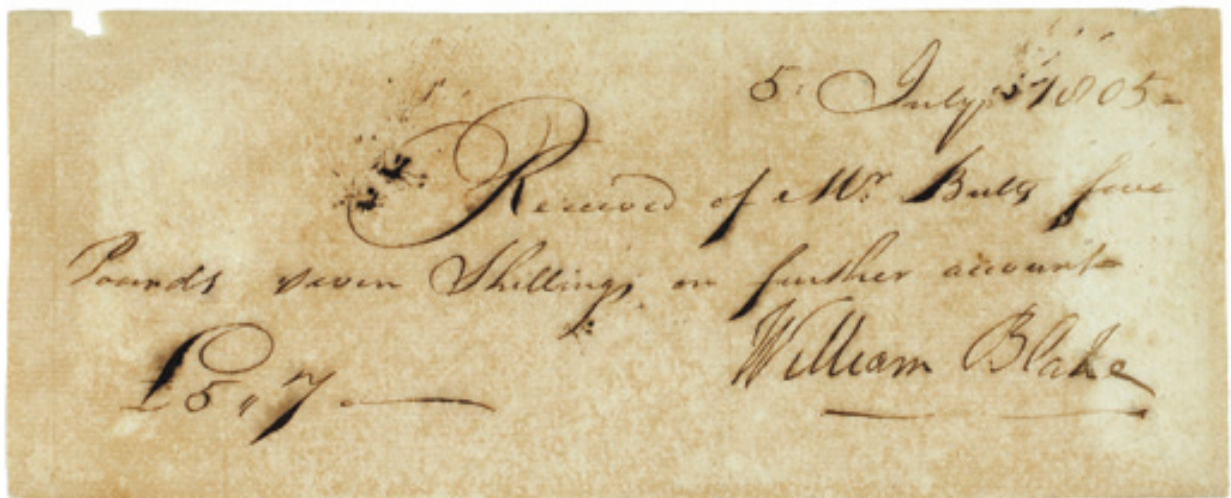 5: July 1805-
Received of Mr. Butts five
Pounds seven Shillings on further account
£5 „ 7 —
William Blake